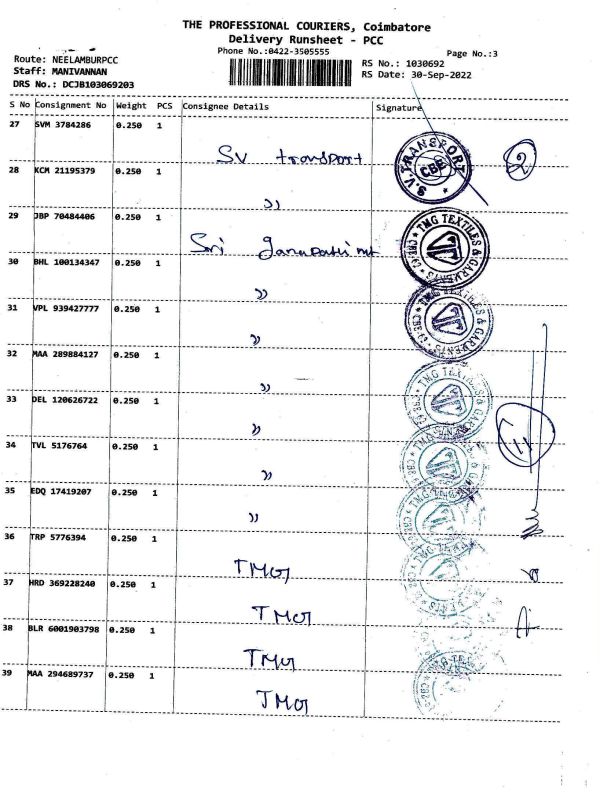 THE PROFESSIONAL COURIERS, Coimbatore
Delivery Runsheet - PCC
Phone No.:0422-3505555
Page No.:3
Route: NEELAMBURPCC
Staff: MANIVANNAN
DRS No.: DCJB103069203
RS No.: 1030692
RS Date: 30-Sep-2022
S No Consignment No Weight PCS Consignee Details Signature
27 SVM 3784286 0.250 1 SV transport S.V. TRANSPORT CBE 2
28 KCM 21195379 0.250 1 〃
29 JBP 70484406 0.250 1 Sri TMG TEXTILES & GARMENTS CBE
30 BHL 100134347 0.250 1 〃
31 VPL 939427777 0.250 1 〃 TMG TEXTILES & GARMENTS
32 MAA 289884127 0.250 1 〃
33 DEL 120626722 0.250 1 〃 TMG TEXTILES & GARMENTS 11
34 TVL 5176764 0.250 1 〃 TMG
35 EDQ 17419207 0.250 1 〃 TMG
36 TRP 5776394 0.250 1 TMG
37 HRD 369228240 0.250 1 TMG
38 BLR 6001903798 0.250 1 TMG
39 MAA 294689737 0.250 1 TMG